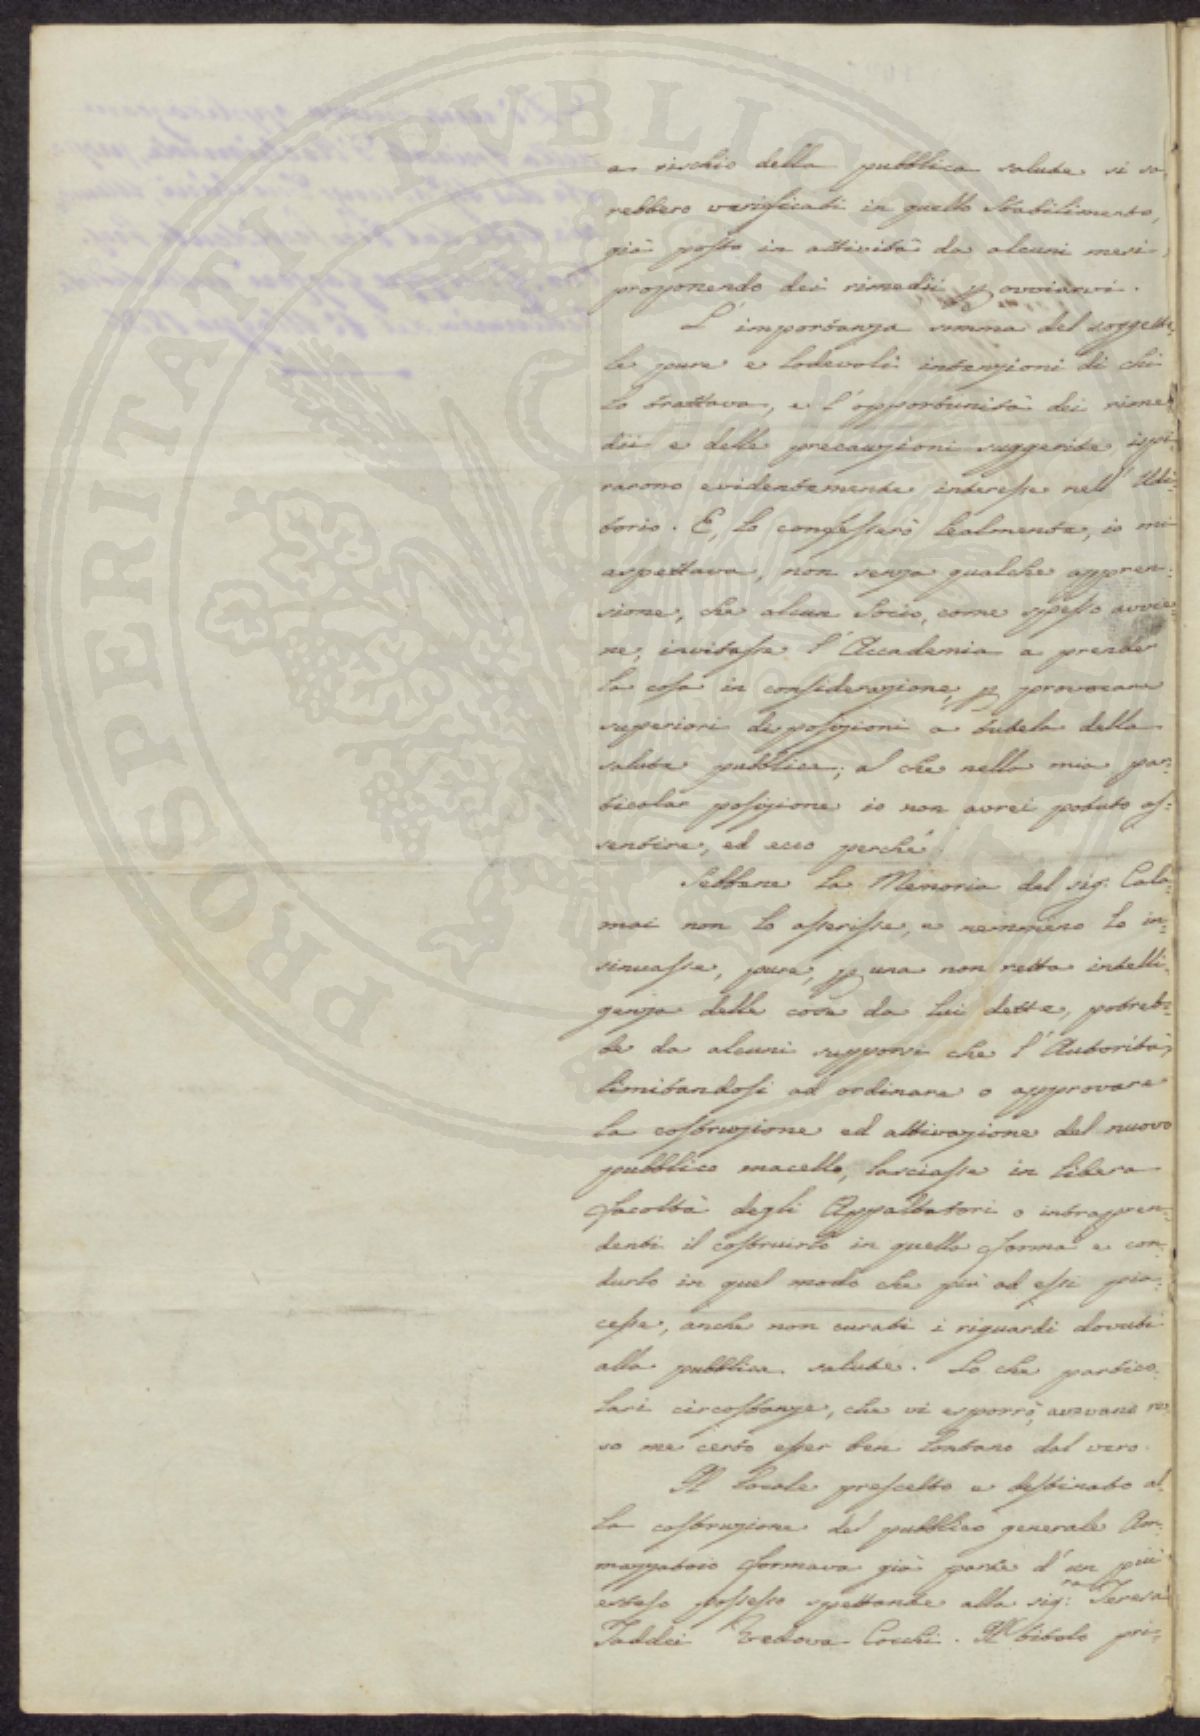 a rischio della pubblica salute si sa
rebbero verificati in quello Stabilimento,
già posto in attività da alcuni mesi,
proponendo dei rimedii p ovviarvi.
L'importanza somma del soggetto,
le pure e lodevoli intenzioni di chi
lo trattava, e l'opportunità dei rime
dii e delle precauzioni suggerite, ispi
rarono evidentemente interesse nell'Udi
torio. E, lo confesserò lealmente, io mi
aspettava, non senza qualche appren=
sione, che alcun Socio, come spesso avvie=
ne, invitasse l'Accademia a prender
la cosa in considerazione, p provocare
superiori disposizioni a tutela della
salute pubblica; al che nella mia par=
ticolar posizione io non avrei potuto as=
sentire, ed ecco perchè.
Sebbene la Memoria del sig. Cala=
mai non lo asserisse, e nemmeno lo in=
sinuasse, pure, p una non retta intelli=
genza delle cose da lui dette, potreb=
be da alcuni supporsi che l'Autorità,
limitandosi ad ordinare o approvare
la costruzione ed attivazione del nuovo
pubblico macello, lasciasse in libera
facoltà degli Appaltatori o intrapren=
denti il costruirlo in quella forma e con=
durlo in quel modo che più ad essi pia=
cesse, anche non curati i riguardi dovuti
alla pubblica salute. Lo che partico=
lari circostanze, che vi esporrò, avevano re=
so me certo esser ben lontano dal vero.
Il locale prescelto e destinato al
la costruzione del pubblico generale Am=
mazzatoio formava già parte d'un più
esteso possesso spettante alla sig:ra Teresa
Taddei Vedova Cocchi. Il titolo pri=
PROSPERITATI PVBLICAE